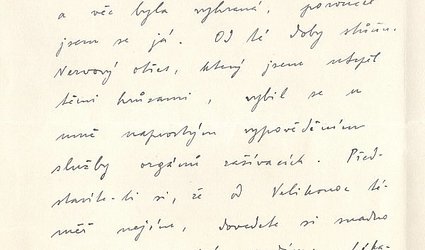 a věc byla vyhraná,
jsem se já. Od té doby stůňu.
Nervový otřes, který jsme utrpěl
těmi hrůzami, vybil se u
mně naprostým vypověděním
služby orgánů zažívacích. Před-
stavíte-li si, že od Velikonoc té-
měř nejím, dovedete si snadno